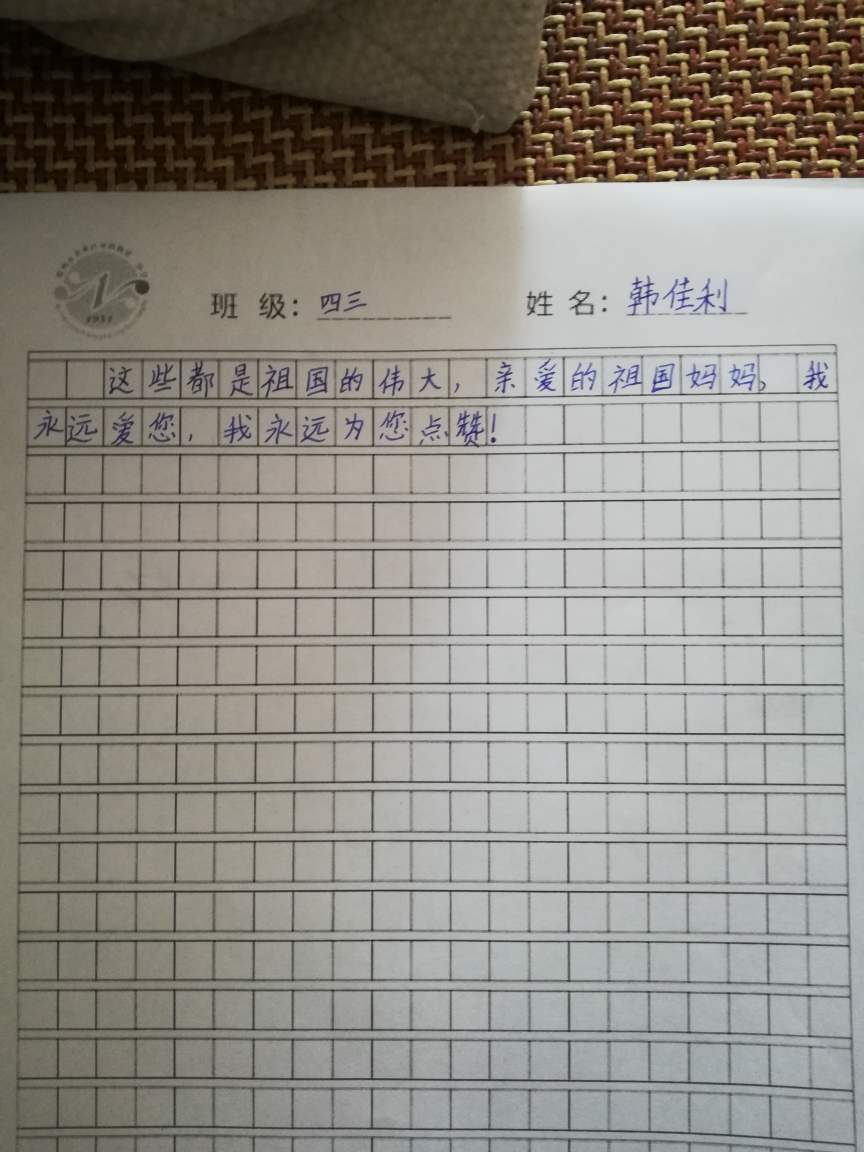 1951
班 级：四三 姓 名：韩佳利
这些都是祖国的伟大，亲爱的祖国妈妈，我
永远爱您，我永远为您点赞！